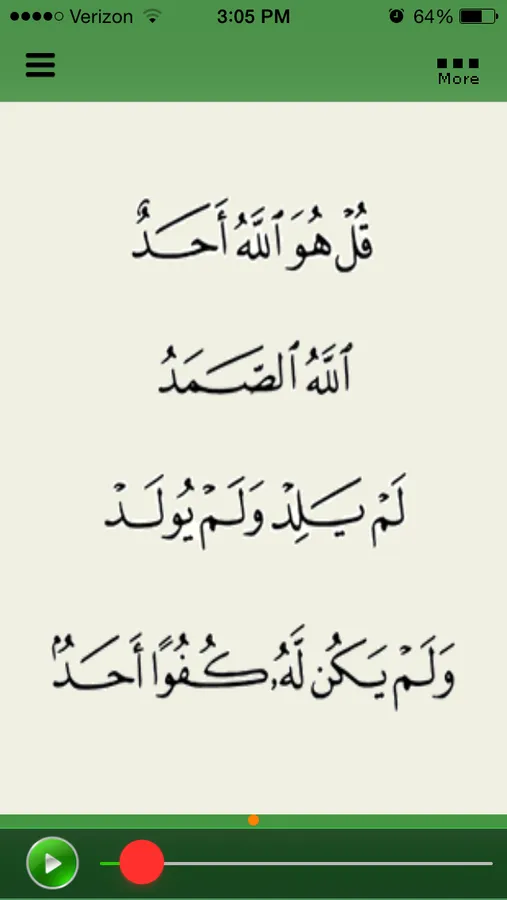 Verizon 3:05 PM 64%
More
قُلْ هُوَ ٱللَّهُ أَحَدٌ
ٱللَّهُ ٱلصَّمَدُ
لَمْ يَلِدْ وَلَمْ يُولَدْ
وَلَمْ يَكُن لَّهُۥ كُفُوًا أَحَدٌۢ